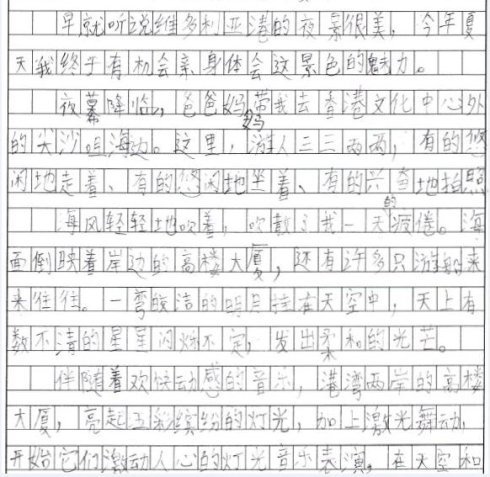 早就听说维多利亚港的夜景很美，今年夏
天我终于有机会亲身体会这景色的魅力。
夜幕降临，爸爸妈妈带我去香港文化中心外
的尖沙咀海边。这里，游人三三两两，有的悠
闲地走着、有的悠闲地坐着、有的兴奋地拍照
海风轻轻地吹着，吹散了我一天的疲倦。海
面倒映着岸边的高楼大厦，还有许多只游船来
来往往。一弯皎洁的明月挂在天空中，天上有
数不清的星星闪烁不定，发出柔和的光芒。
伴随着欢快动感的音乐，港湾两岸的高楼
大厦，亮起五彩缤纷的灯光，加上激光舞动，
开始它们激动人心的灯光音乐表演，在天空和